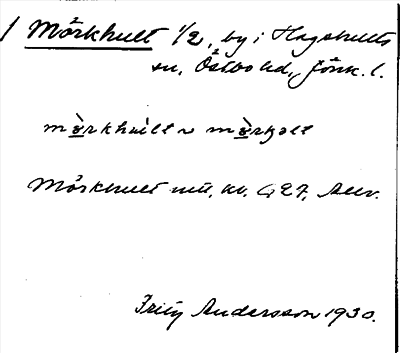 1 Mörkhult 1/2, by i Hagshults
sn, Östbo hd, Jönk. l.
mö̀rkhu̇lt ~ mö̀rkəlt
Mörkhult utt. av. G 27, Auv.
Frity Andersson 1930.